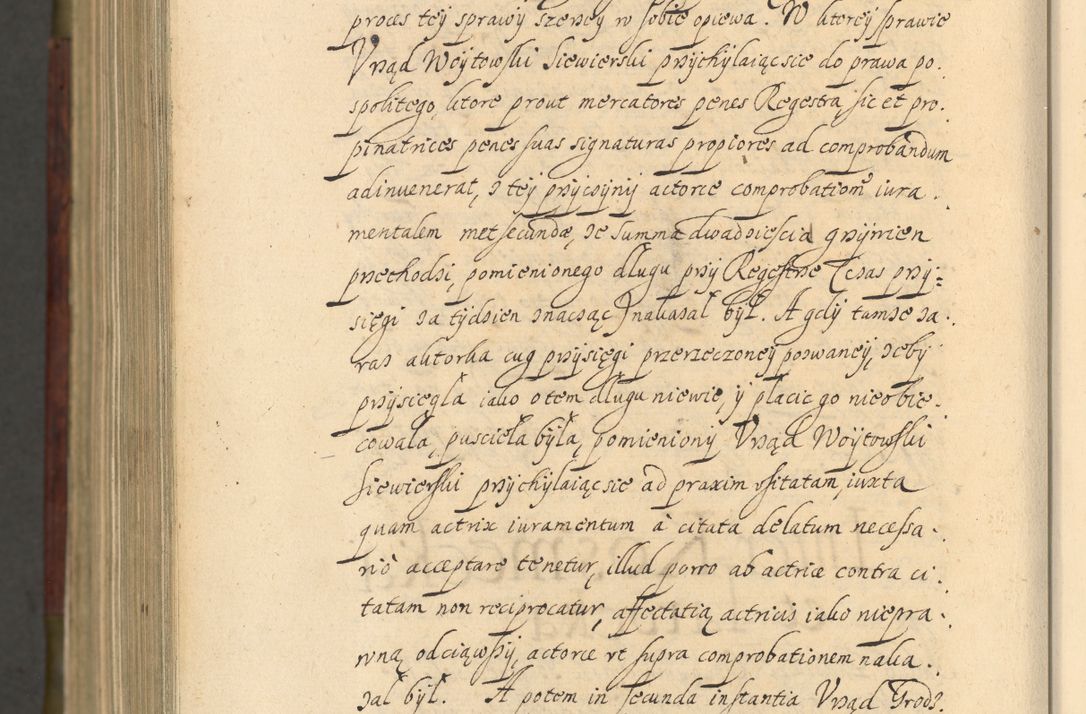 proces tey sprawy szerzey w sobie opiewa. W ktorey sprawie
Vrząd Woytowski Siewierski przychylaiącsie do prawa po.
spolitego, ktore prout mercatores penes Regestra, sic et pro.
pinatrices penes suas signaturas propiores ad comprobandum
adinuenerat, z tey przyczyny actorce comprobationē iura.
mentalem metsecundæ, że summa dwadziescia grzywien
przechodzi, pomienionego dlugu przy Regestrze [czas przy=
sięgi za tydzien znacząc] nakazał był. A gdy tamże za.
raz aktorka cug przysięgi przerzeczoney pozwaney, żeby
przysięgła iako o tem długu niewie, y płacic go nieobie.
cowała, pusciela była, pomieniony Vrząd Woytowski
Siewierski przychylaiącsie ad praxim vsitatam, iuxta
quam actrix iuramentum à citata delatum necessa.
riò acceptare tenetur, illud porro ab actrice contra ci.
tatam non reciprocatur, affectatią actricis iako niepra.
wną odciąwszy, actorce vt supra comprobationem naka.
zał był. A potem in secunda instantia Vrząd Grodz.